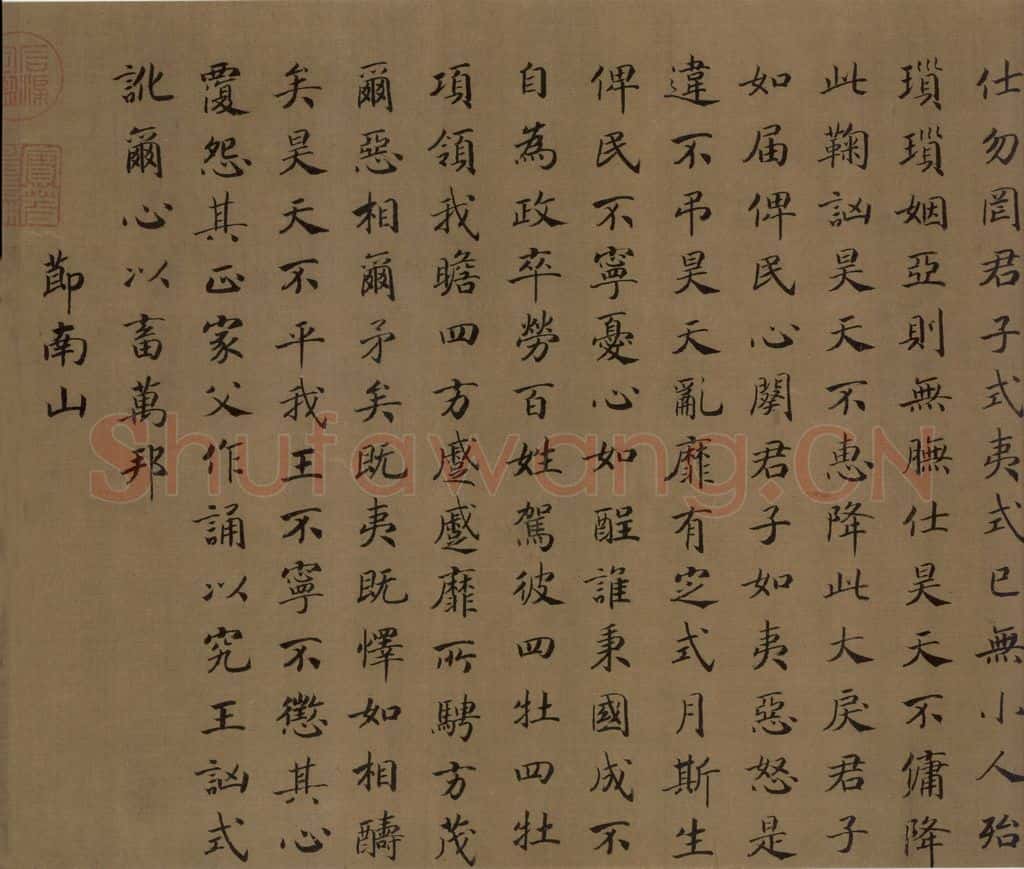 仕勿罔君子式夷式已無小人殆
瑣瑣姻亞則無膴仕昊天不傭降
此鞠訩昊天不惠降此大戾君子
如届俾民心闋君子如夷惡怒是
違不弔昊天亂靡有定式月斯生
俾民不寧憂心如酲誰秉國成不
自為政卒勞百姓駕彼四牡四牡
項領我瞻四方蹙蹙靡所騁方茂
爾惡相爾矛矣既夷既懌如相醻
矣昊天不平我王不寧不懲其心
覆怨其正家父作誦以究王訩式
訛爾心以畜萬邦
節南山
Shufawang.CN